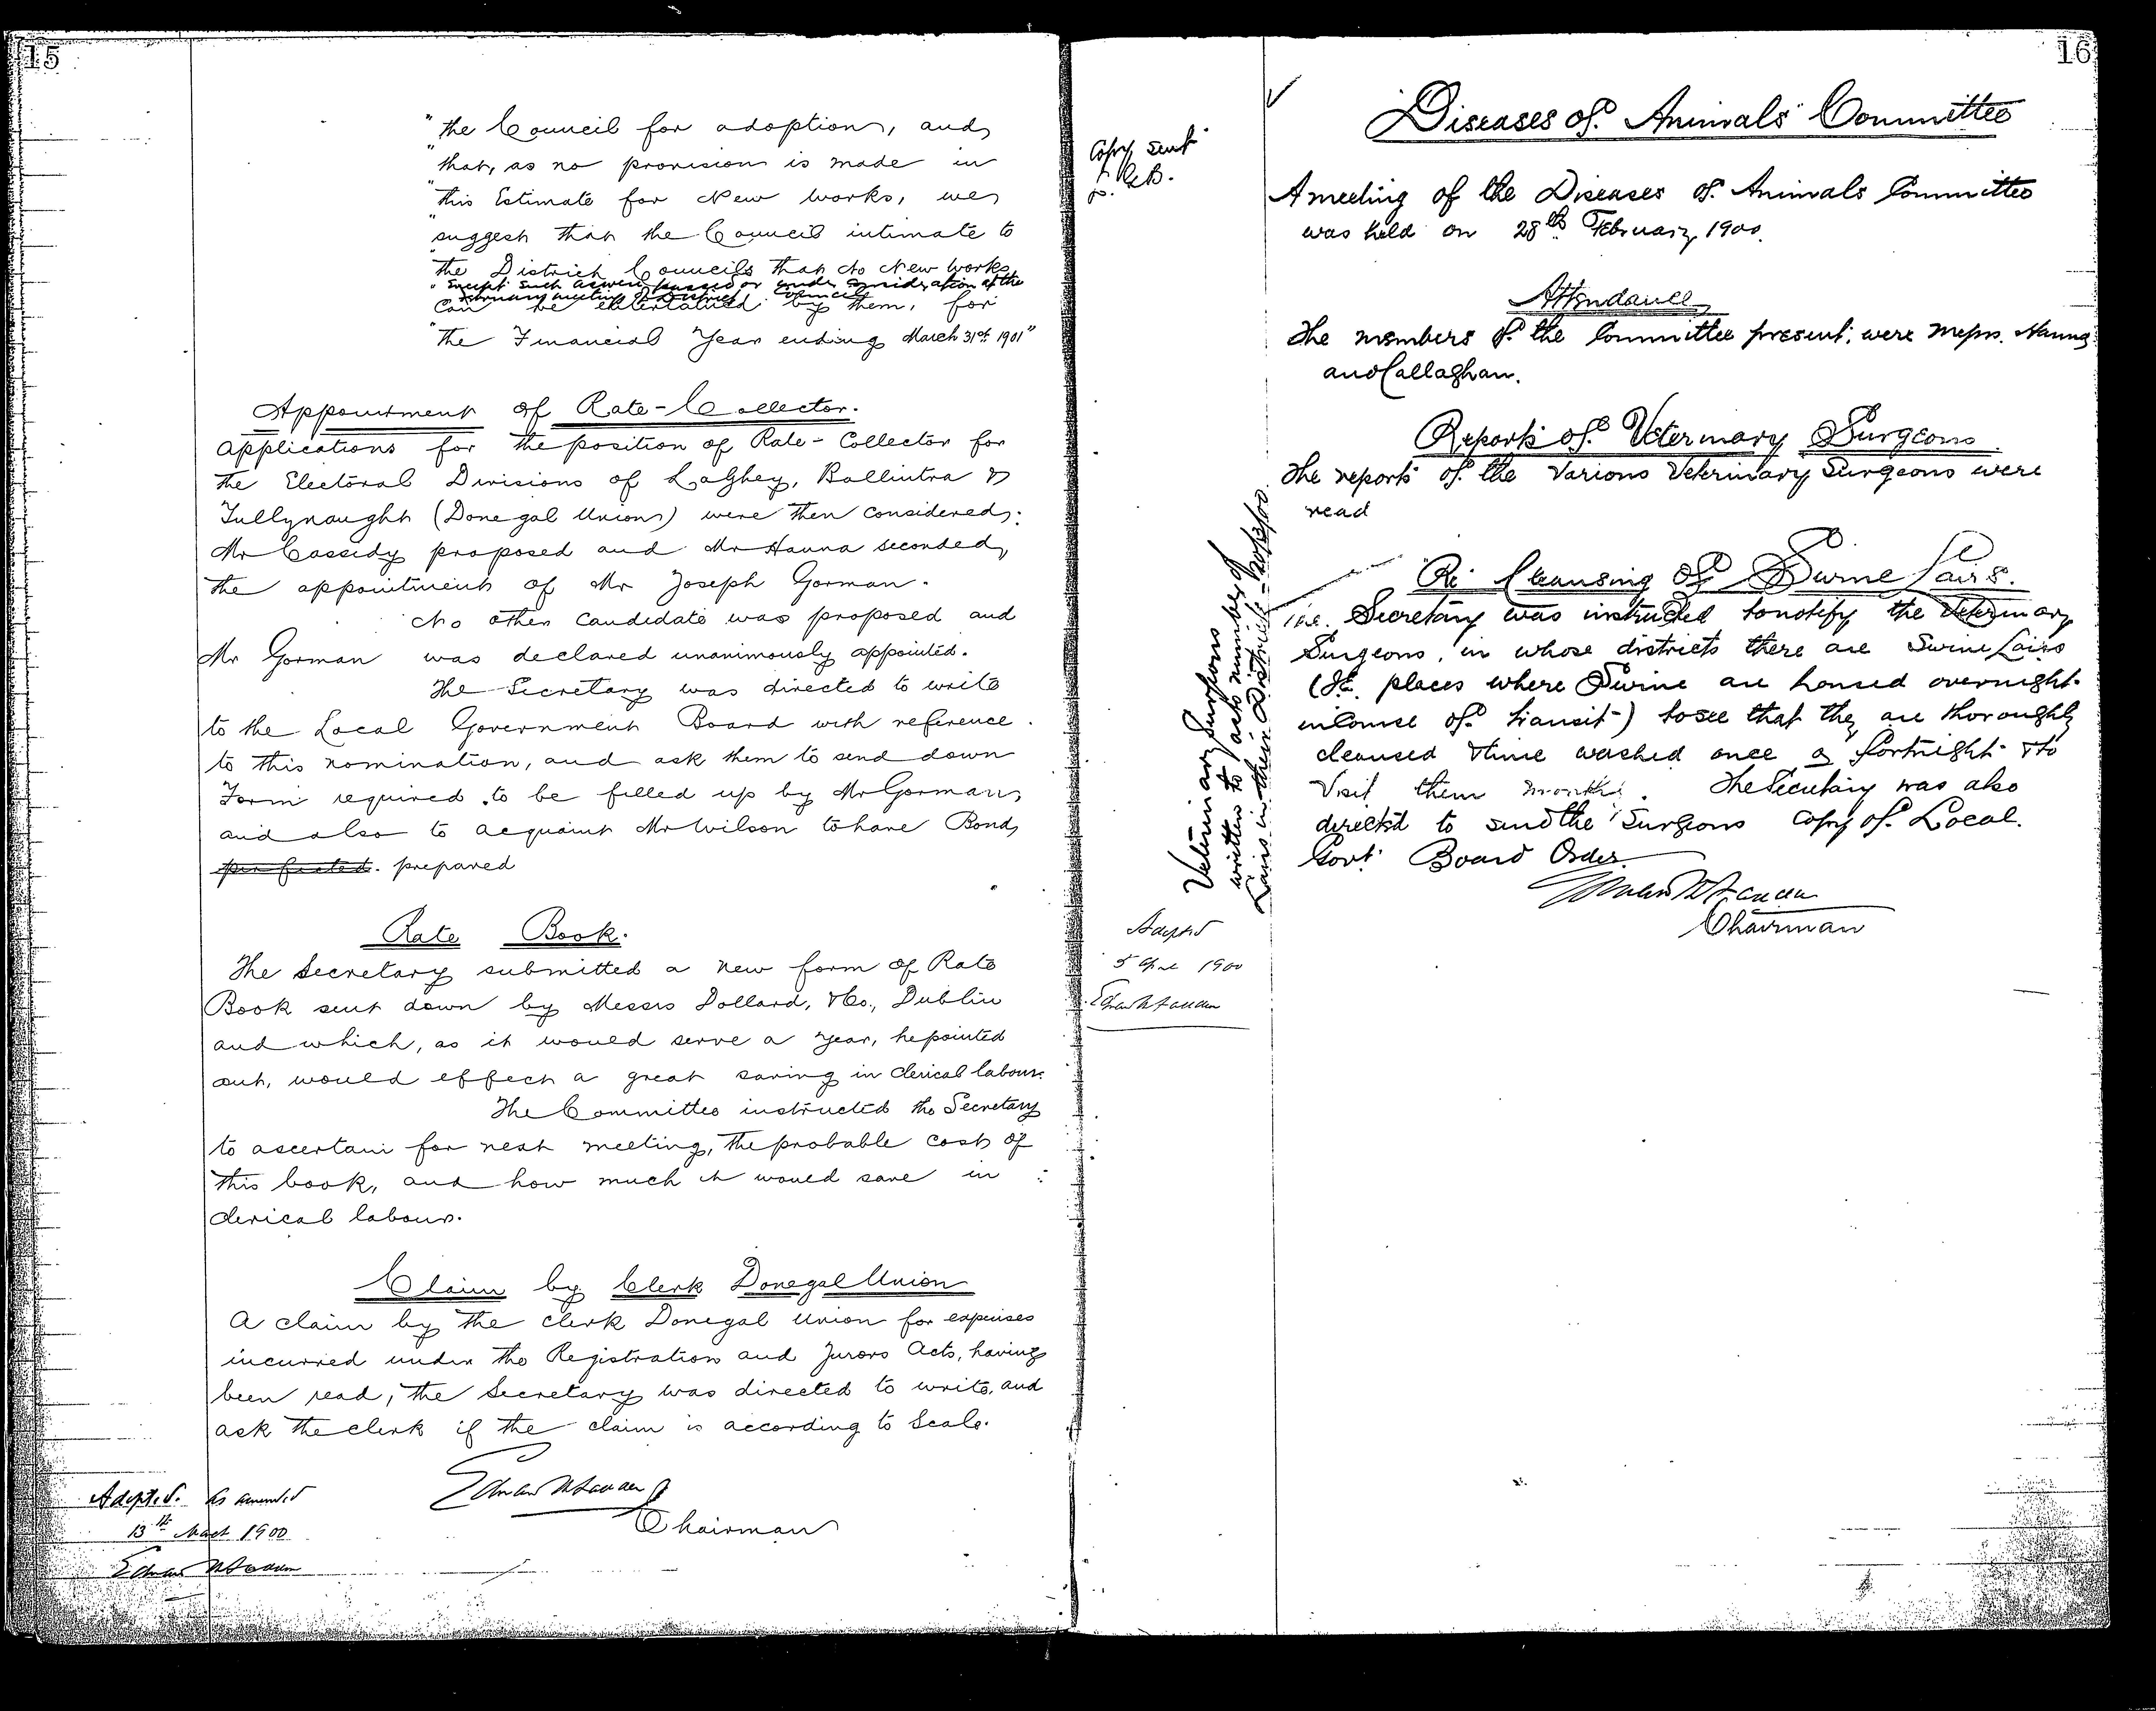 15
"the Council for adoption, and
"that, as no provision is made in
"this Estimate for New works, we
"suggest that the Council intimate to
"the District Councils that no New works
"except such as were passed or under consideration at the
February meeting of District Councils
can be entertained by them, for
"the Financial Year ending March 31st 1901"
Appointment of Rate-Collector.
Applications for the position of Rate-Collector for
the Electoral Divisions of Laghey, Ballintra &
Tullynaught (Donegal Union) were then considered.
Mr Cassidy proposed and Mr Hanna seconded,
the appointment of Mr Joseph Gorman.
No other candidate was proposed and
Mr Gorman was declared unanimously appointed.
The Secretary was directed to write
to the Local Government Board with reference
to this nomination, and ask them to send down
Form required to be filled up by Mr Gorman,
and also to acquaint Mr Wilson to have Bond
perfected. prepared
Rate Book.
The Secretary submitted a new form of Rate
Book sent down by Messrs Dollard, & Co., Dublin
and which, as it would serve a year, he pointed
out, would effect a great saving in clerical labour.
The Committee instructed the Secretary
to ascertain for next meeting, the probable cost of
this book, and how much it would save in
clerical labour.
Claim by Clerk Donegal Union
A claim by the clerk Donegal Union for expenses
incurred under the Registration and Jurors Acts, having
been read, the Secretary was directed to write, and
ask the clerk if the claim is according to Scale.
Chairman
Adopted. As amended
13th March 1900
16
Copy sent
Diseases of Animals Committee
A meeting of the Diseases of Animals Committee
was held on 28th February 1900.
Attendance
The members of the Committee present, were Messrs. Hanna
and Callaghan.
Reports of Veterinary Surgeons
The reports of the various Veterinary Surgeons were
read
Re Cleansing of Swine Lairs.
The Secretary was instructed to notify the Veterinary
Surgeons, in whose districts there are Swine Lairs
(i.e. places where Swine are housed overnight
in course of transit) to see that they are thoroughly
cleansed & lime washed once a fortnight & to
visit them monthly. The Secretary was also
directed to send the Surgeons copy of Local
Govt Board Order.
Chairman
Veterinary Surgeons
written to as to number of
Lairs in their Districts
Adopted
5 April 1900